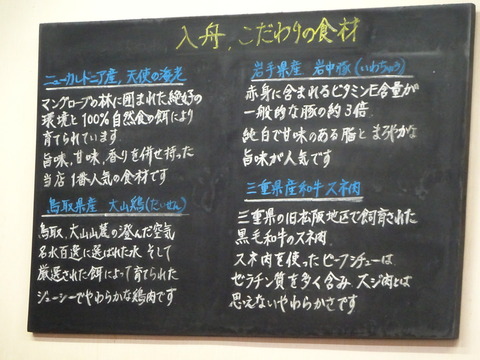 入舟、こだわりの食材
ニューカルドニア産、天使の海老
マングローブの林に囲まれた絶好の
環境と100%自然食の餌により
育てられています
旨味、甘味、香りを併せ持った
当店1番人気の食材です
鳥取県産 大山鶏(だいせん)
鳥取、大山山麓の澄んだ空気
名水百選に選ばれた水 そして
厳選された餌によって育てられた
ジューシーでやわらかな鶏肉です
岩手県産 岩中豚(いわちゅう)
赤身に含まれるビタミンE含量が
一般的な豚の約3倍
純白で甘味のある脂と まろやかな
旨味が人気です
三重県産和牛スネ肉
三重県の旧松阪地区で飼育された
黒毛和牛のスネ肉
スネ肉を使ったビーフシチューは
ゼラチン質を多く含み、スジ肉とは
思えないやわらかさです